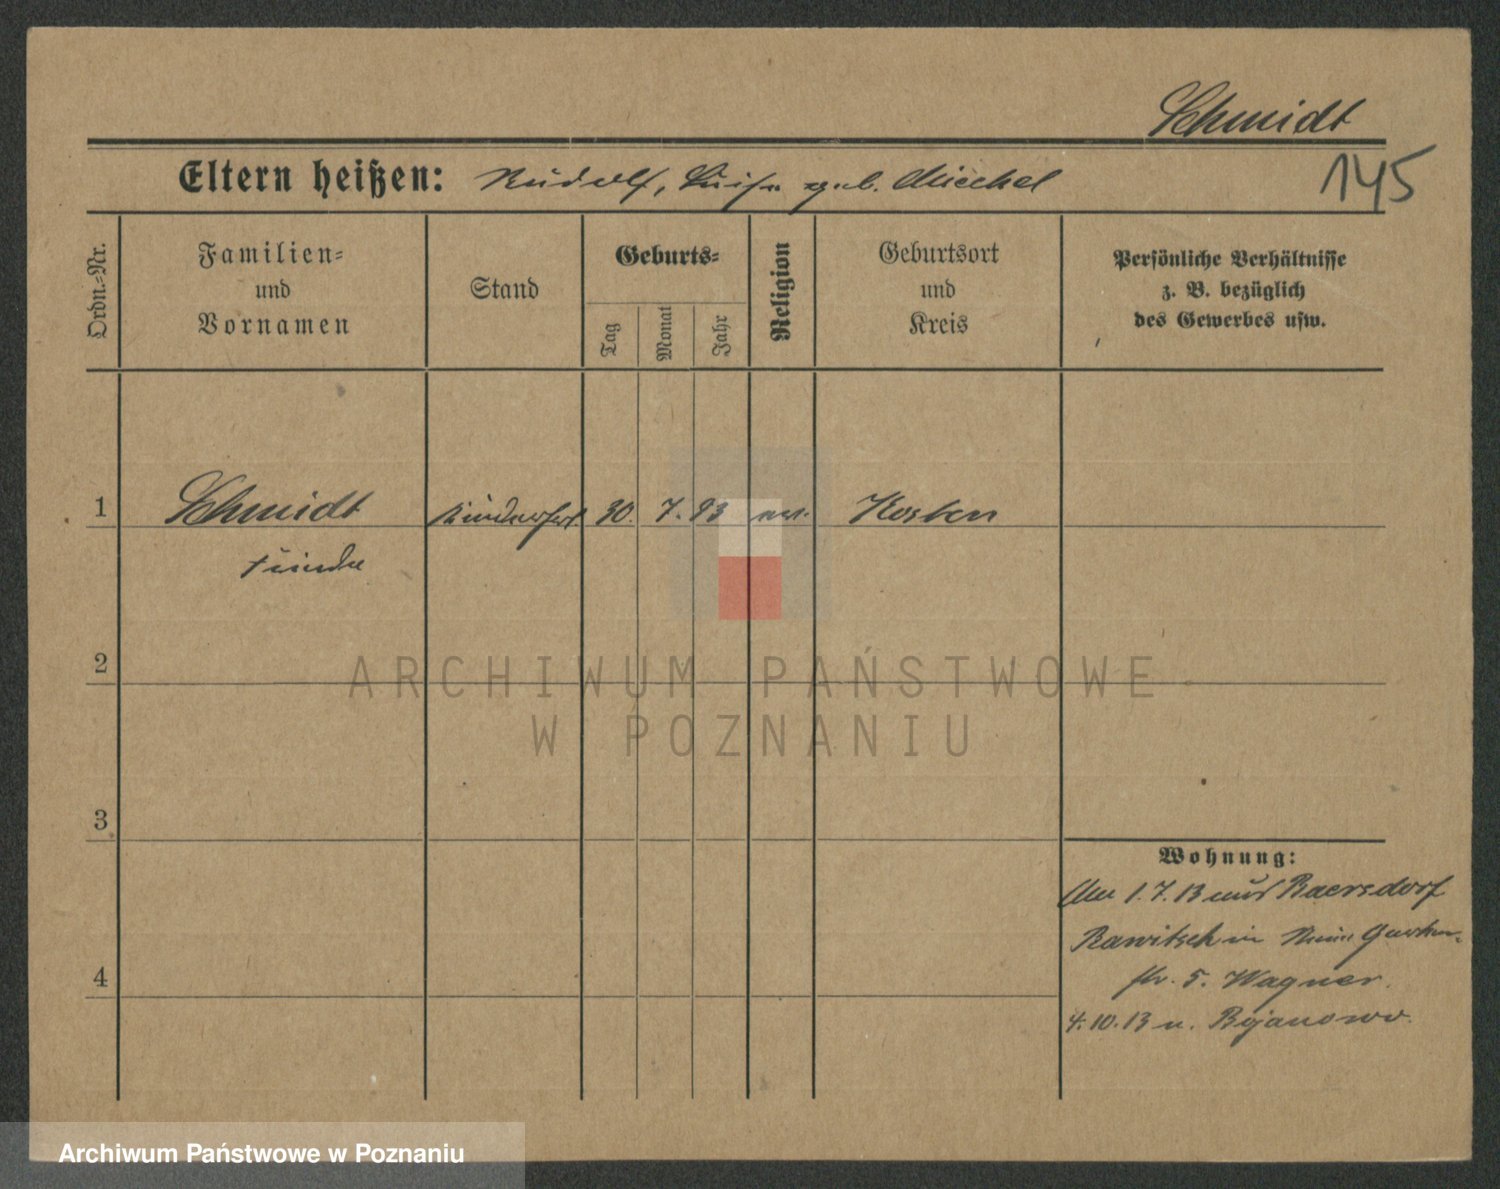 Schmidt
145
Eltern heißen: Rudolf, Luise geb. Miechel
Ordn.=Nr.
Familien=
und
Vornamen
Stand
Geburts=
Tag
Monat
Jahr
Religion
Geburtsort
und
Kreis
Persönliche Verhältnisse
z. B. bezüglich
des Gewerbes usw.
1 Schmidt 30. 7. 93 ev. Kosten
2
3
4
Wohnung:
Am 1.7.13 aus Baersdorf
Rawitsch in Garten-
str. 5. Wagner.
4.10.13 n. Bojanowo.
ARCHIWUM PAŃSTWOWE
W POZNANIU
Archiwum Państwowe w Poznaniu